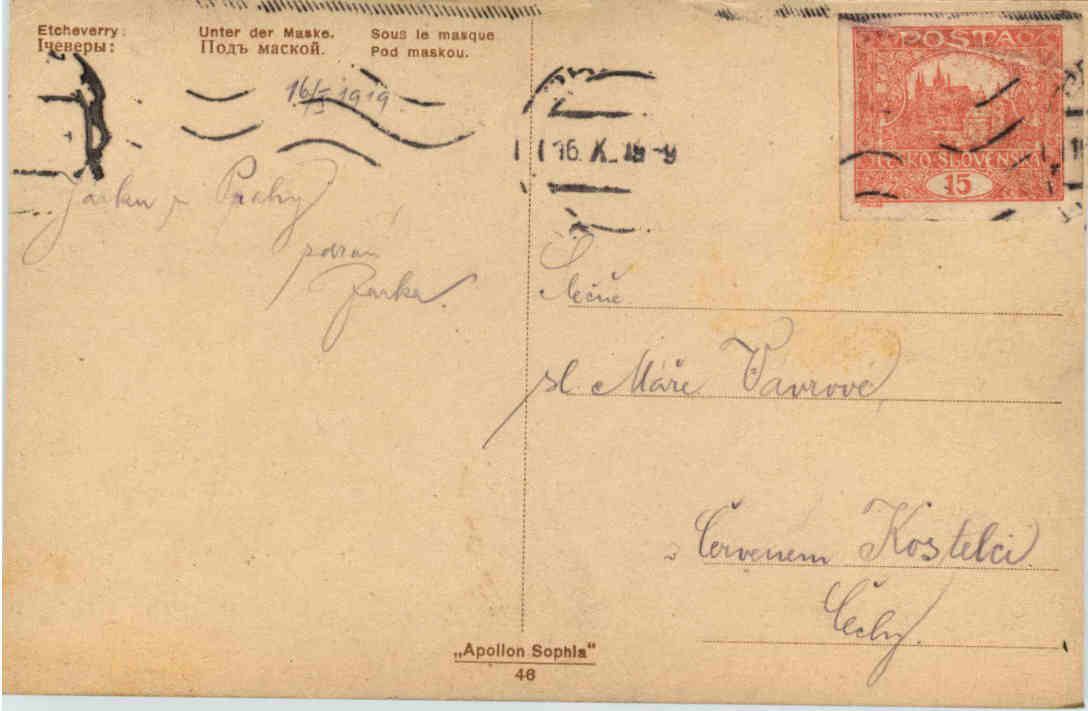 Etcheverry:
Ічеверы:
Unter der Maske.
Подъ маской.
Sous le masque
Pod maskou.
POŠTA
ČESKO-SLOVENSKÁ
15
16/X 1919
16.X.19-9
Prahy
Jarka.
Slečně
sl. Máře Vávrové,
v Červeném Kostelci
Čechy.
„Apollon Sophia"
46